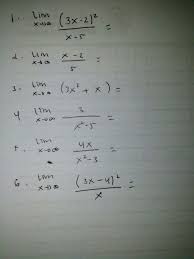 1. Lim x→∞ (3x-2)² / x-5 =
2. Lim x→∞ x-2 / 5 =
3. Lim x→∞ (3x² + x) =
4 Lim x→∞ 3 / x²-5 =
5. Lim x→∞ 4x / x²-3 =
6. Lim x→∞ (3x-4)² / x =